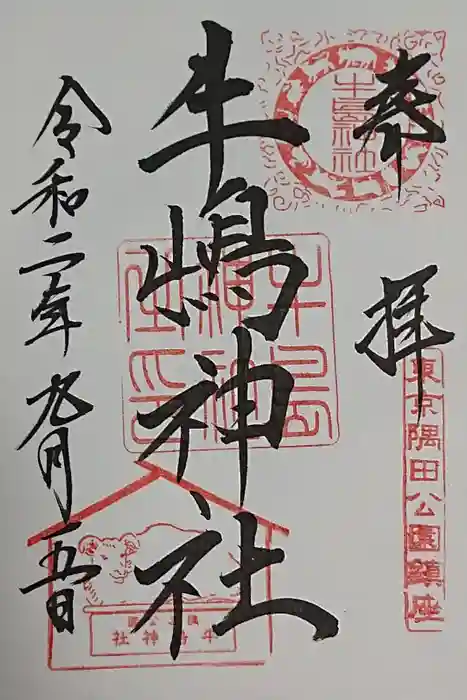 奉拝
東京隅田公園鎮座
牛嶋神社
牛嶋神社
令和二年九月一五日
牛嶋神社